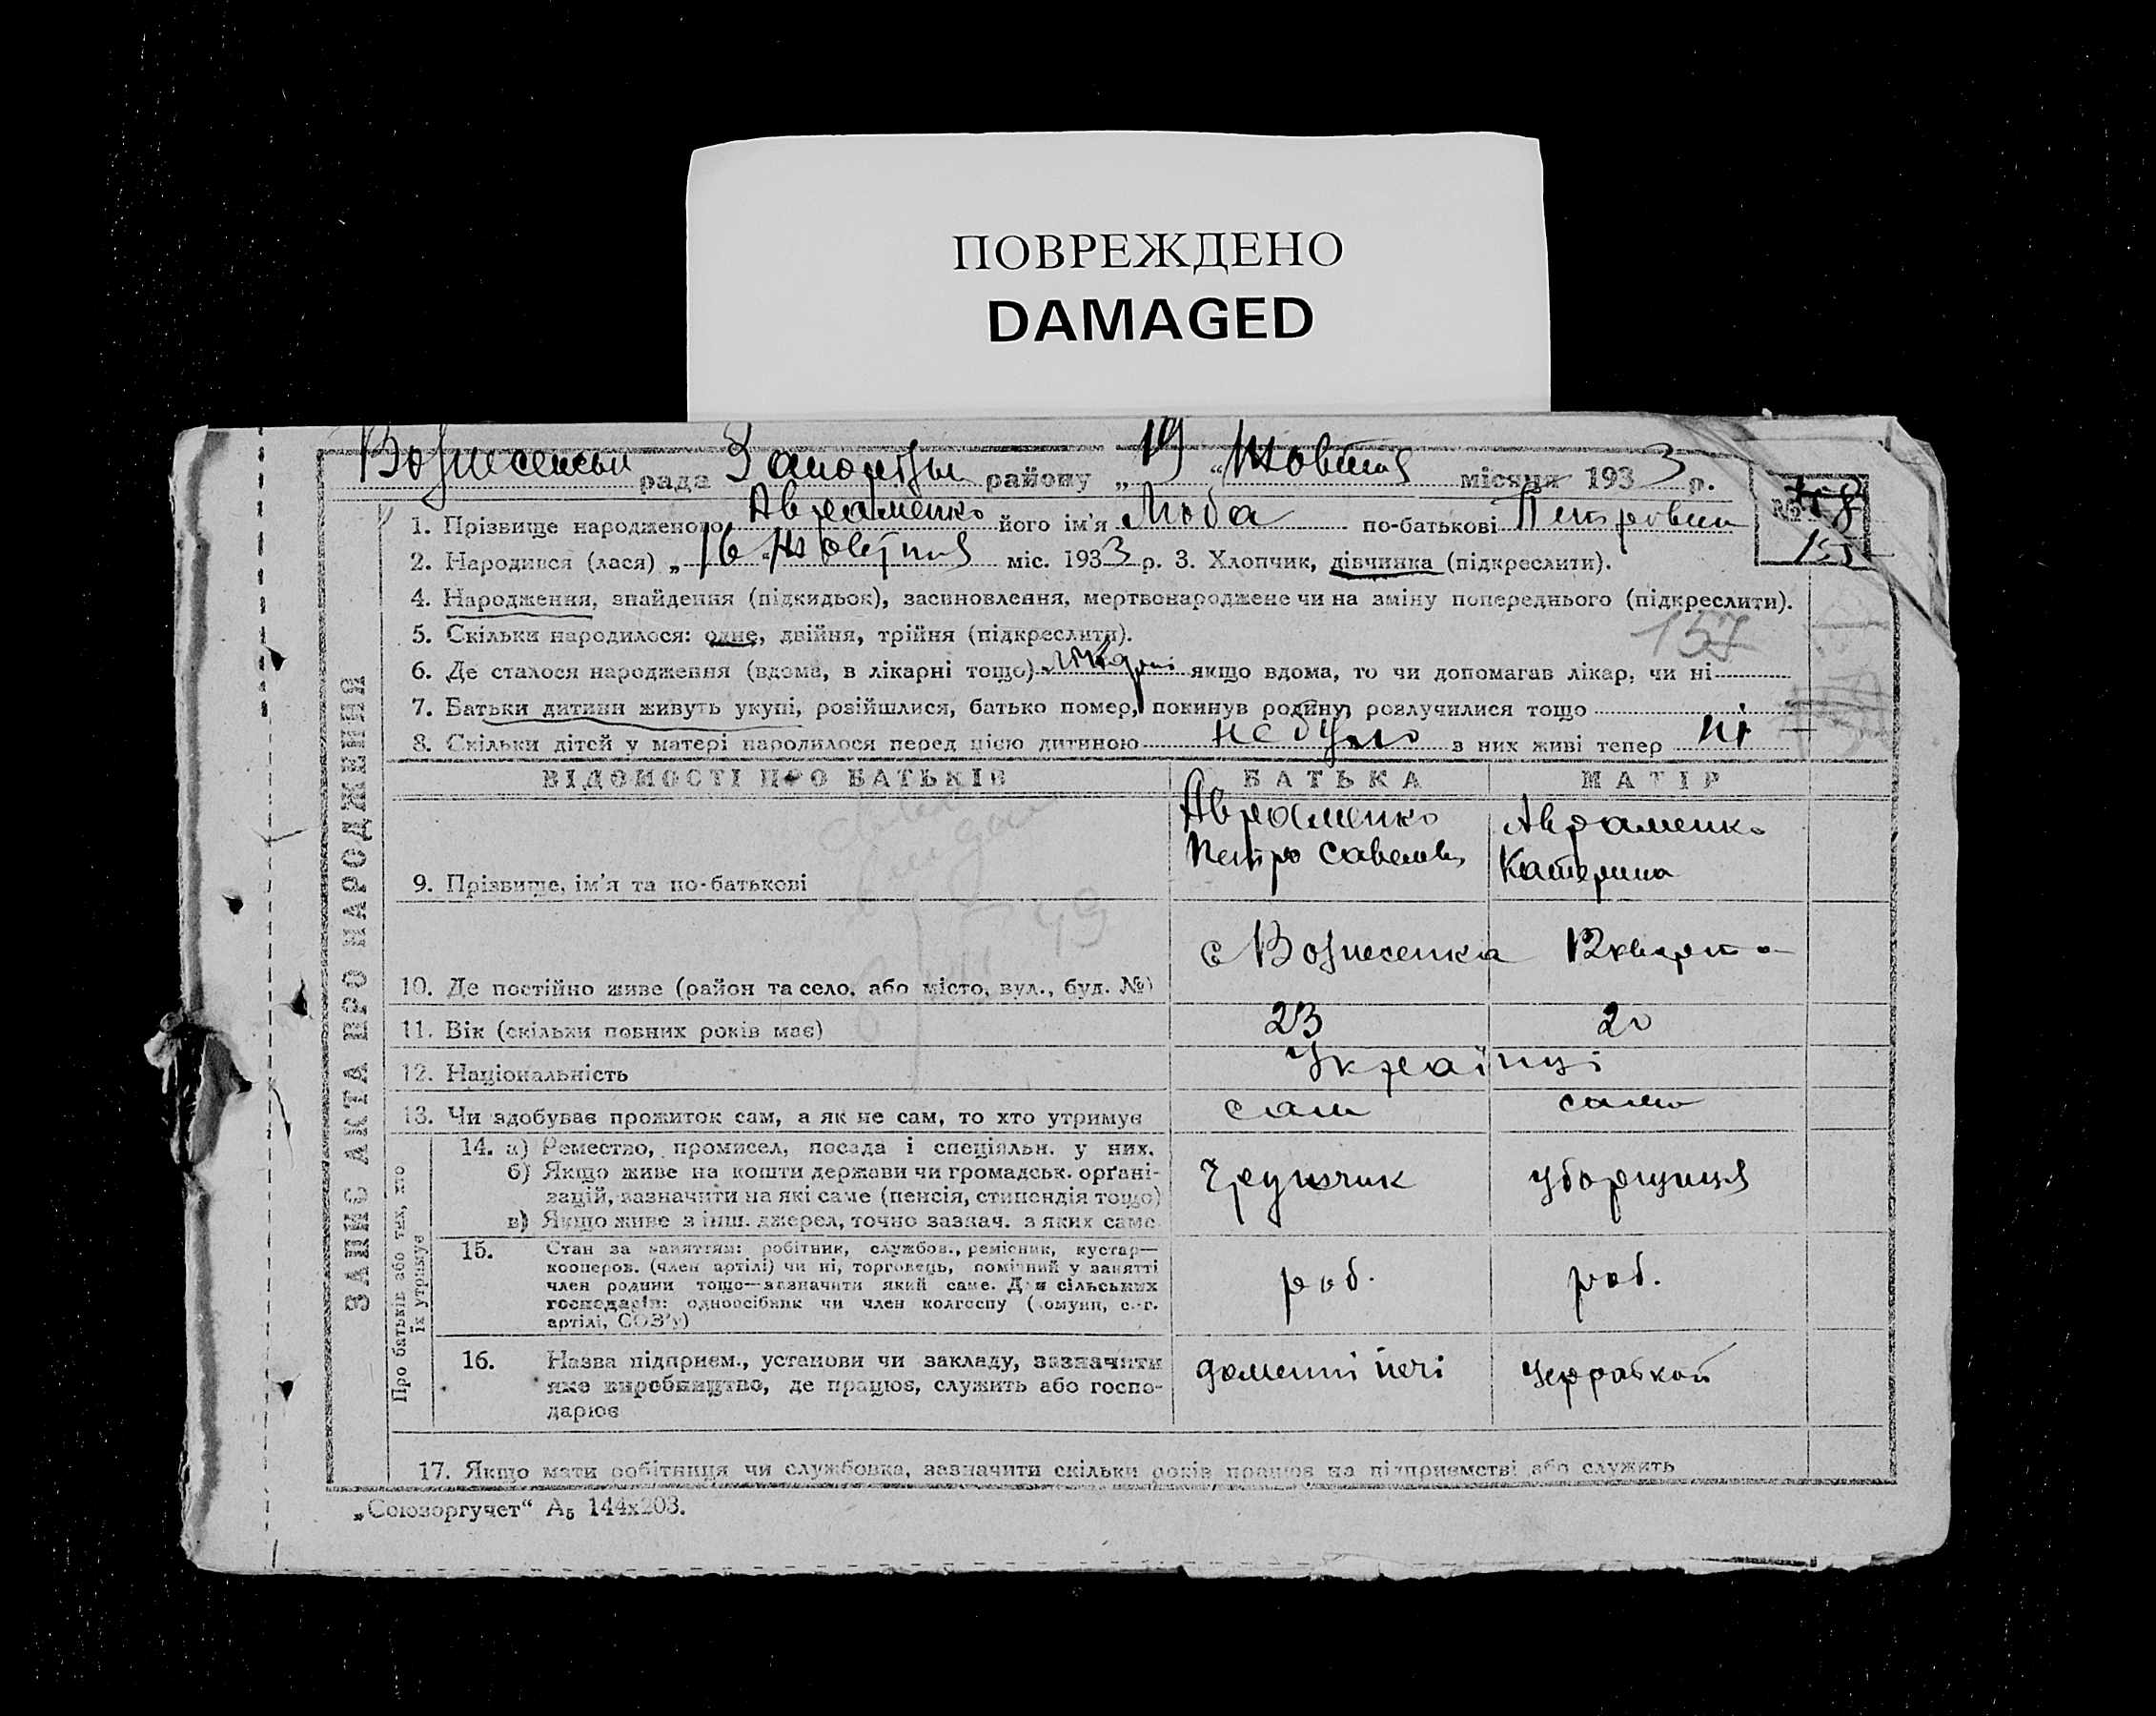 ПОВРЕЖДЕНО
DAMAGED
Вознесенськ рада Запорізьк району „19“ Жовтня місяця 1933 р.
1. Прізвище народженого Авраменко його ім'я Люба по-батькові Петровна
№
2. Народився (лася) „16“ Жовтня міс. 1933 р. 3. Хлопчик, дівчинка (підкреслити).
4. Народження, знайдення (підкидьок), засиновлення, мертвонароджене чи на зміну попереднього (підкреслити).
5. Скільки народилося: одне, двійня, трійня (підкреслити).
157
6. Де сталося народження (вдома, в лікарні тощо) якщо вдома, то чи допомагав лікар, чи ні
7. Батьки дитини живуть укупі, розійшлися, батько помер, покинув родину, розлучилися тощо
8. Скільки дітей у матері народилося перед цією дитиною не було з них живі тепер ні
ЗАПИС АКТА ПРО НАРОДЖЕННЯ
ВІДОМОСТІ ПРО БАТЬКІВ БАТЬКА МАТІР
9. Прізвище, ім'я та по-батькові
Авраменко
Петро Савелов
Авраменко
Катерина
49
10. Де постійно живе (район та село, або місто, вул., буд. №)
с Вознесенка
11. Вік (скільки повних років має) 23 20
12. Національність Українці
13. Чи здобуває прожиток сам, а як не сам, то хто утримує сам сама
Про батьків або тих, хто
їх утримує
14. а) Ремество, промисел, посада і спеціяльн. у них.
б) Якщо живе на кошти держави чи громадськ. орґані-
зацій, зазначити на які саме (пенсія, стипендія тощо)
в) Якщо живе з інш. джерел, точно зазнач. з яких саме
уборщиця
15. Стан за заняттям: робітник, службов., ремісник, кустар—
кооперов. (член артілі) чи ні, торговець, помічний у занятті
член родини тощо—зазначити який саме. Для сільських
господарів: одноосібник чи член колгоспу (комуни, с.-г.
артілі, СОЗ'у)
роб. роб.
16. Назва підприєм., установи чи закладу, зазначити
яке виробництво, де працює, служить або госпо-
дарює
доменні печі
17. Якщо мати робітниця чи службовка, зазначити скільки років працює на підприємстві або служить
„Союзоргучет“ А5 144х203.